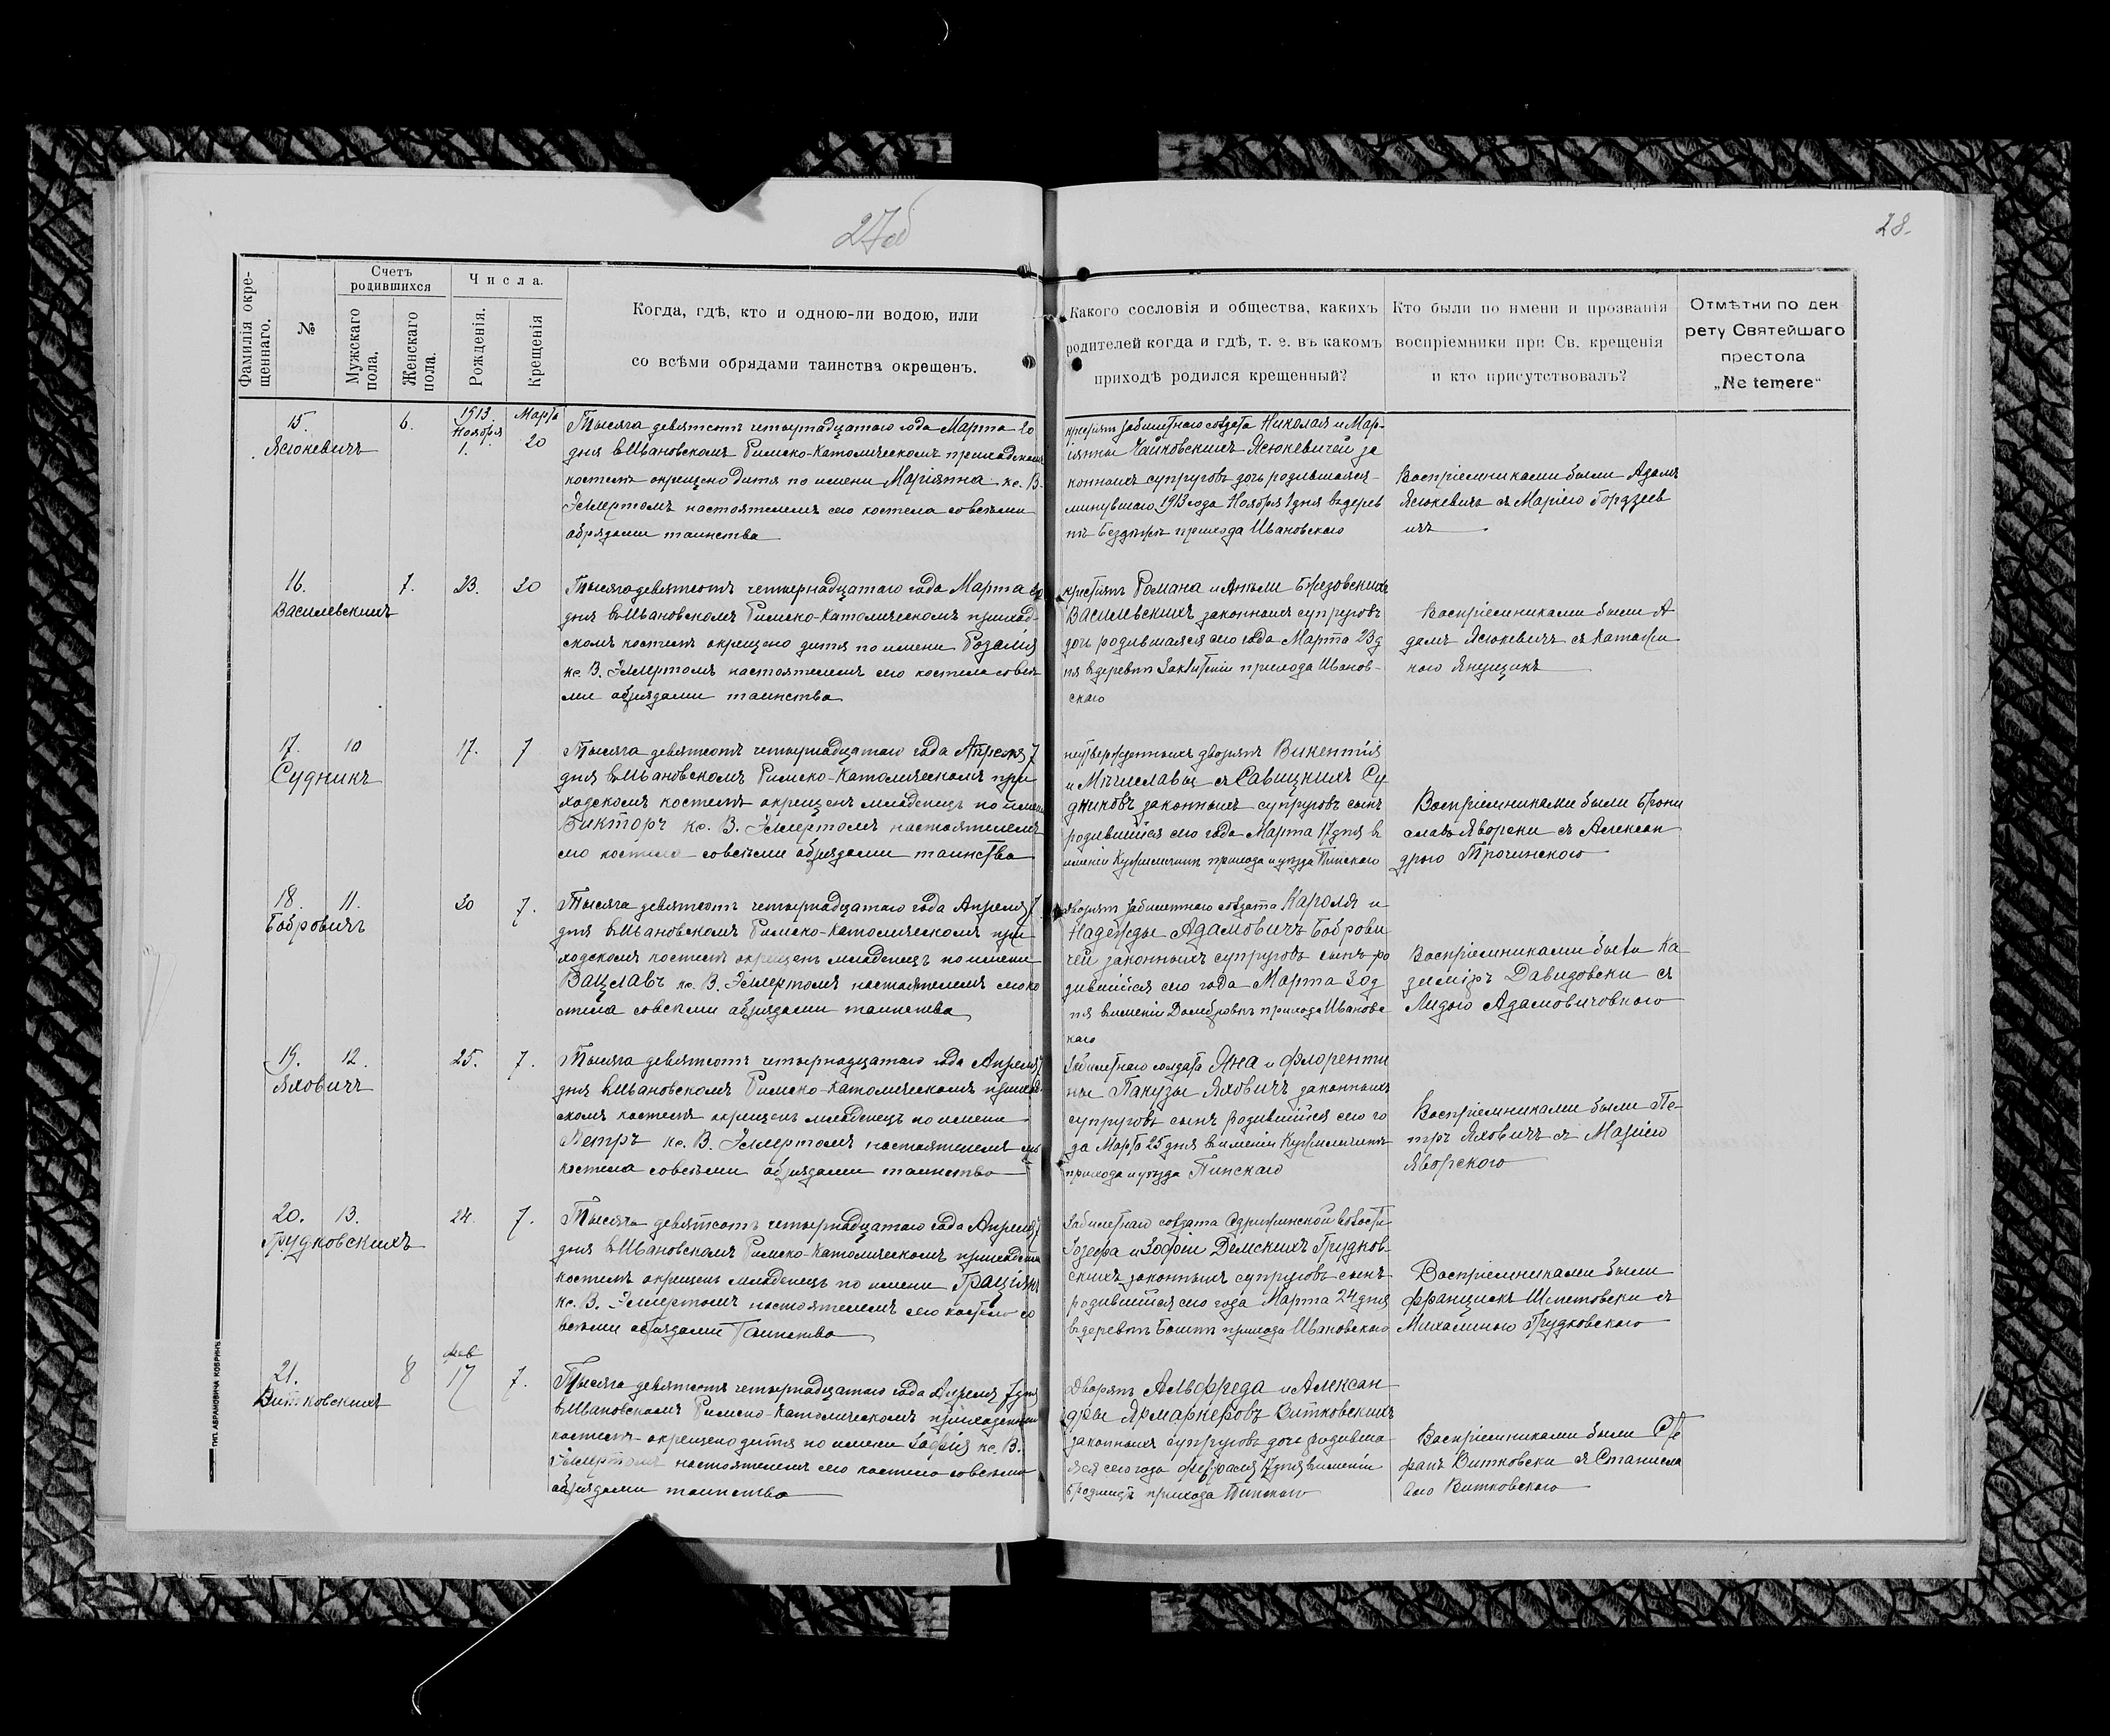 27об
28.
Фамилія окрещеннаго.
№
Счетъ родившихся
Мужскаго пола.
Женскаго пола.
Числа.
Рожденія.
Крещенія
Когда, гдѣ, кто и одною-ли водою, или
со всѣми обрядами таинства окрещенъ.
Какого сословія и общества, какихъ
родителей когда и гдѣ, т. е. въ какомъ
приходѣ родился крещенный?
Кто были по имени и прозванія
воспріемники при Св. крещенія
и кто присутствовалъ?
Отмѣтки по дек
рету Святейшаго
престола
„Ne temere“
15.
Ясюкевичъ
6.
1913.
Ноября
1.
Марта
20
Тысяча девятсотъ четырнадцатаго года Марта 20
дня в Ивановскомъ Римско-Католическомъ приходскомъ
костелѣ окрещено дитя по имени Маріянна кс. В.
Эмертомъ настоятелемъ сего костела совсѣми
обрядами таинства
крестьян забилетнаго солдата Николая и Мар-
іянны Чайковскихъ Ясюкевичей за
конныхъ супруговъ дочь родившаяся
минувшаго 1913 года Ноября 1 дня в дерев
нѣ Бездѣжъ прихода Ивановскаго
Воспріемниками были Адамъ
Ясюкевичъ съ Маріею Гордзеев
ичъ
16.
Василевскихъ
7.
23.
20
Тысяча девятсотъ четырнадцатаго года Марта 20
дня в Ивановскомъ Римско-Католическомъ приход-
скомъ костелѣ окрещено дитя по имени Розалія
кс. В. Эмертомъ настоятелемъ сего костела совсѣ
ми обрядами таинства
крестьянъ Романа и Анели Брезовскихъ
Василевскихъ законныхъ супруговъ
дочь родившаяся сего года Марта 23 д
ня в деревнѣ прихода Иванов-
скаго
Воспріемниками были А
дамъ Ясюкевичъ съ
17.
10
Судникъ
17.
7
Тысяча девятсотъ четырнадцатаго года Апреля 7
дня в Ивановскомъ Римско-Католическомъ при
ходскомъ костелѣ окрещенъ младенецъ по имени
Викторъ кс. В. Эмертомъ настоятелемъ
сего костела совсѣми обрядами таинства
неутвержденныхъ дворянъ Викентія
и Мечиславы съ Савицкихъ Су
дниковъ законныхъ супруговъ сынъ
родившійся сего года Марта 17 дня в
имѣніи прихода и уѣзда Пинскаго
Воспріемниками были Брони
славъ Яворски съ Алексан
дрою Трочинскою
18.
11.
Бобровичъ
30
7.
Тысяча девятсотъ четырнадцатаго года Апреля 7
дня в Ивановскомъ Римско-Католическомъ при
ходскомъ костелѣ окрещенъ младенецъ по имени
Вацлавъ кс. В. Эмертомъ настоятелемъ сего ко
стела совсѣми обрядами таинства
дворянъ забилетнаго солдата Кароля и
Надежды Адамовичъ Борови
чей законныхъ супруговъ сынъ ро
дившійся сего года Марта 30 д
ня в имѣніи Домбровкѣ прихода Ивановс
каго
Воспріемниками были Ка
зимиръ Давидовски съ
Лидою Адамовичовною
19.
12.
Яховичъ
25.
7.
Тысяча девятсотъ четырнадцатаго года Апреля 7
дня в Ивановскомъ Римско-Католическомъ приход-
скомъ костелѣ окрещенъ младенецъ по имени
Петръ кс. В. Эмертомъ настоятелемъ сего
костела совсѣми обрядами таинства
Забилетнаго солдата Яна и Флоренти
ны Яховичъ законныхъ
супруговъ сынъ родившійся сего го
да Марта 25 дня в имѣніи
прихода и уѣзда Пинскаго
Воспріемниками были Пе-
тръ Яховичъ съ Маріею
Яворскою
20.
13.
Грудковскихъ
24.
7.
Тысяча девятсотъ четырнадцатаго года Апреля 7
дня в Ивановскомъ Римско-Католическомъ приходскомъ
костелѣ окрещенъ младенецъ по имени Граціянъ
кс. В. Эмертомъ настоятелемъ сего костела со
всѣми обрядами таинства
Забилетнаго солдата волости
Іозефа и Зофіи Демскихъ Грудков-
скихъ законныхъ супруговъ сынъ
родившійся сего года Марта 24 дня
в деревнѣ прихода Ивановскаго
Воспріемниками были
Францишекъ съ
Михалиною Грудковскою
21.
Витковскихъ
8
фев
17
7.
Тысяча девятсотъ четырнадцатаго года Апреля 7 дня
в Ивановскомъ Римско-Католическомъ приходскомъ
костелѣ окрещено дитя по имени Зофія кс. В.
Эмертомъ настоятелемъ сего костела совсѣми
обрядами таинства
Дворянъ Альфреда и Алексан
дры Ярмаркеровъ Витковскихъ
законныхъ супруговъ дочь родивша
яся сего года Февраля 17 дня в имѣніи
прихода Пинскаго
Воспріемниками были Сте
фанъ Витковски съ Станисла
вою Витковскою
ТИП. АБРАМОВИЧА КОБРИНЪ